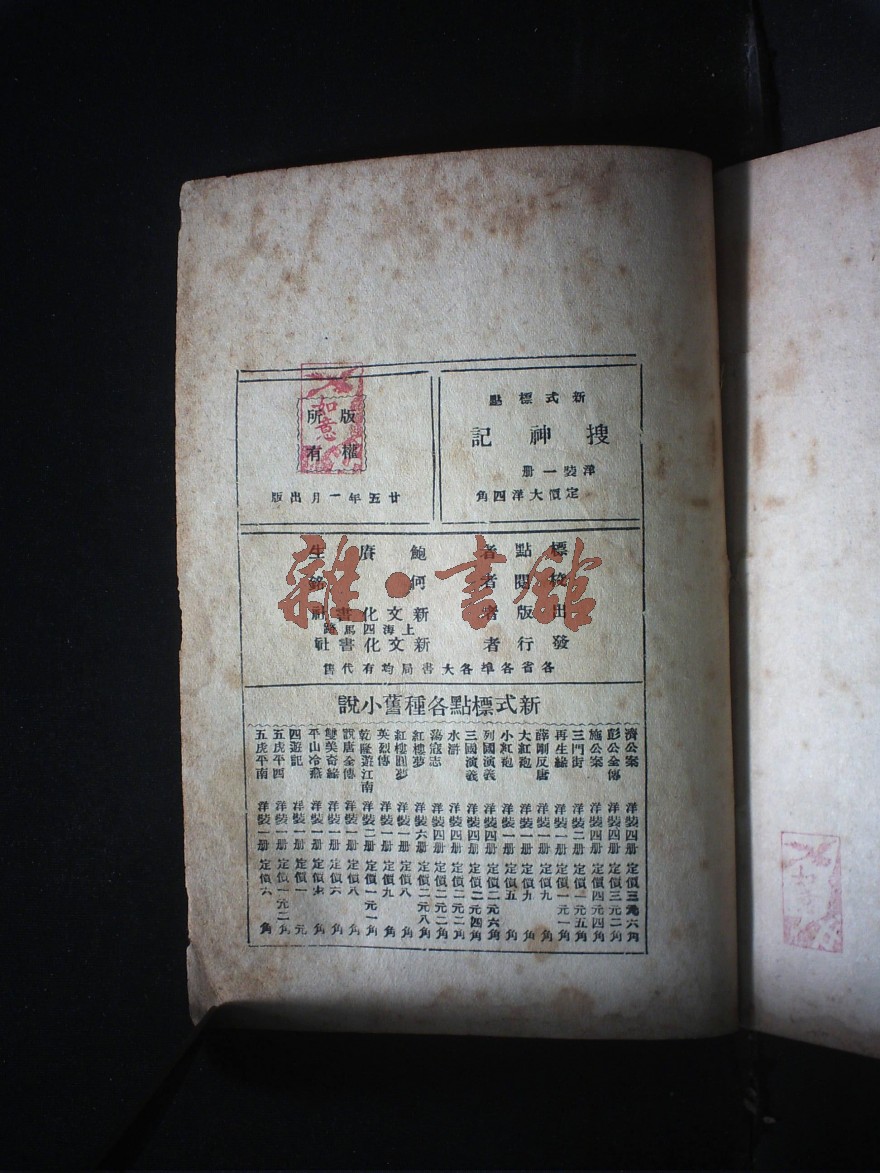 新式標點
搜神記
洋裝一册
定價大洋四角
版權所有
如意
廿五年一月出版
標點者 鮑賡生
校閱者 何銘
出版者 新文化書社
上海四馬路
發行者 新文化書社
各省各埠各大書局均有代售
雜·書館
新式標點各種舊小說
濟公案 洋裝四册 定價三元六角
彭公全傳 洋裝四册 定價三元二角
施公案 洋裝四册 定價四元四角
三門街 洋裝二册 定價一元五角
再生緣 洋裝一册 定價一元一角
薛剛反唐 洋裝一册 定價九角
大紅袍 洋裝一册 定價九角
小紅袍 洋裝一册 定價五角
列國演義 洋裝四册 定價二元六角
三國演義 洋裝四册 定價二元四角
水滸 洋裝四册 定價二元二角
蕩寇志 洋裝四册 定價二元二角
紅樓夢 洋裝六册 定價二元八角
紅樓圓夢 洋裝一册 定價八角
英烈傳 洋裝一册 定價九角
乾隆遊江南 洋裝二册 定價一元一角
說唐全傳 洋裝一册 定價八角
雙美奇緣 洋裝一册 定價六角
平山冷燕 洋裝一册 定價 角
四遊記 洋裝一册 定價一元
五虎平西 洋裝一册 定價一元二角
五虎平南 洋裝一册 定價六角
如意